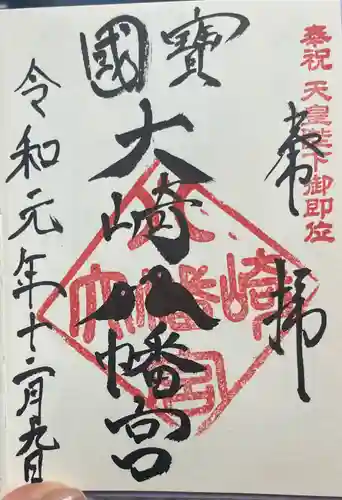 奉祝 天皇陛下御即位
奉拝
寶
國
大崎八幡宮
令和元年十二月九日